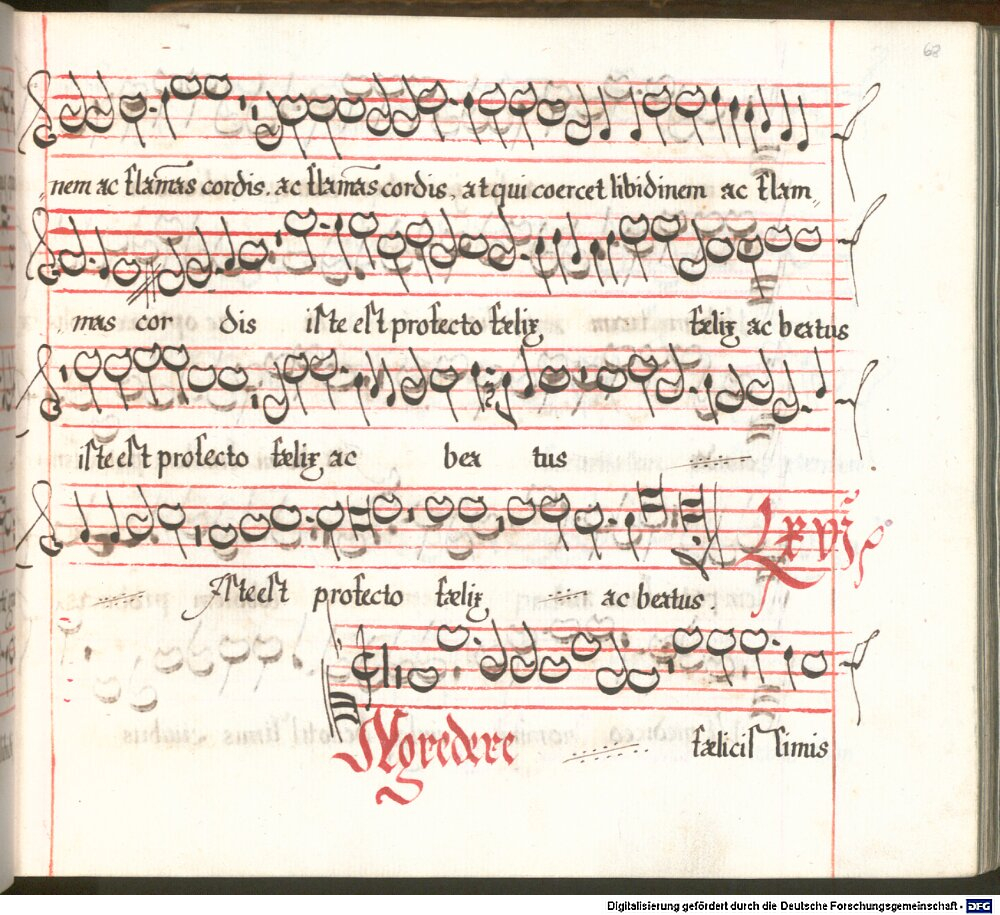 68
nem ac flam̄as cordis. ac flam̄as cordis, at qui coercet libidinem ac flam„
mas cor dis iste est profecto fælix fælix ac beatus
iste est profecto fælix ac bea tus
Iste est profecto fælix ac beatus.
Lxvij
INgredere fælicis simis
Digitalisierung gefördert durch die Deutsche Forschungsgemeinschaft - DFG